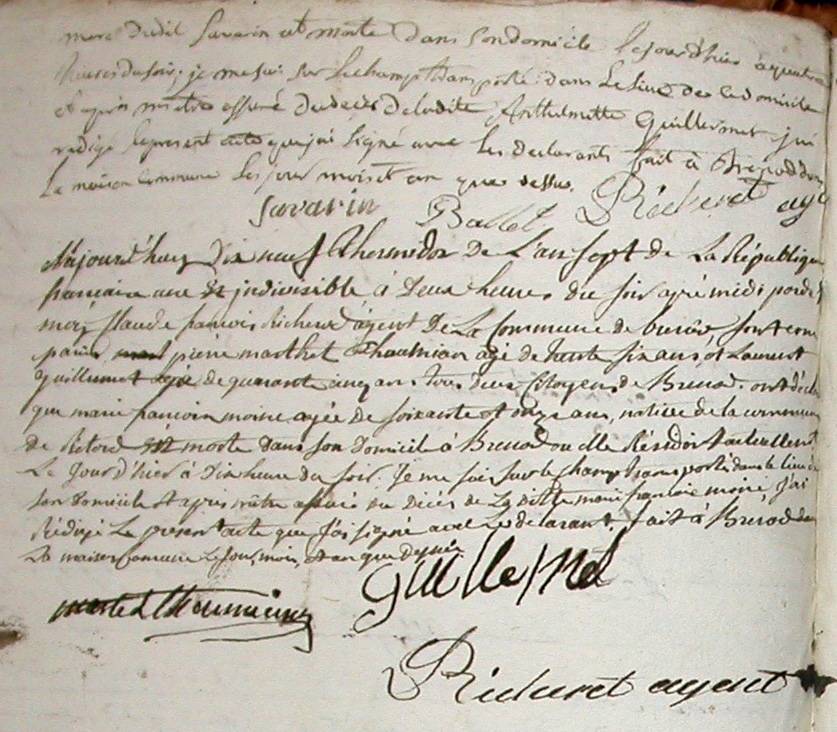 mere dudit Savarin est morte dans son domicile le jourd'hier a quatre
heures du soir, je me sui sur le champ transporté dans le lieu de ce domicile
et après m'etre assuré du deces de ladite Anthelmette Guillermet j'ai
redigé le present acte que j'ai signé avec les declarants fait à Brenod dans
la maison commune les jour mois et an que dessus.
Savarin Ballet Richeret agent
Aujourd'huy Dix neuf Thermidor De L'an sept de La République
française une et indivisible à Deux heures du soir apré midi pardev
moy Claude françois Richeret agent De La Commune de brenod, sont com
parus pierre marthet Chaumian agé de trante six ans, et Laurent
guillermet agée de quarante cinq ans tous deux Citoyens de Brenod. ont déclaré
que marie françoise moine agée de soixante et onze ans, native de la commune
de Retord est morte dans son Domicile à Brenod ou elle Résidoit actuellement
Le Jour d'hier à Dix heure du soir. Je me suis sur le champ transporté dans le lieu de
son Domicile et après m'être assuré du Décés de La ditte marie françoise moine, j'ai
Rédigé Le présent acte que J'ai signé avec Le déclarant. fait à Brenod dans
La maison Commune Le Jour, mois, et an que Dessus.
Guillermet
Richeret agent